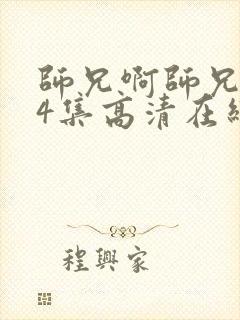 師兄啊師兄
4集高清在
程興家